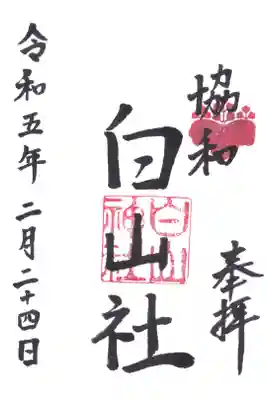 協和
奉拝
白山社
白山神社
令和五年 二月二十四日